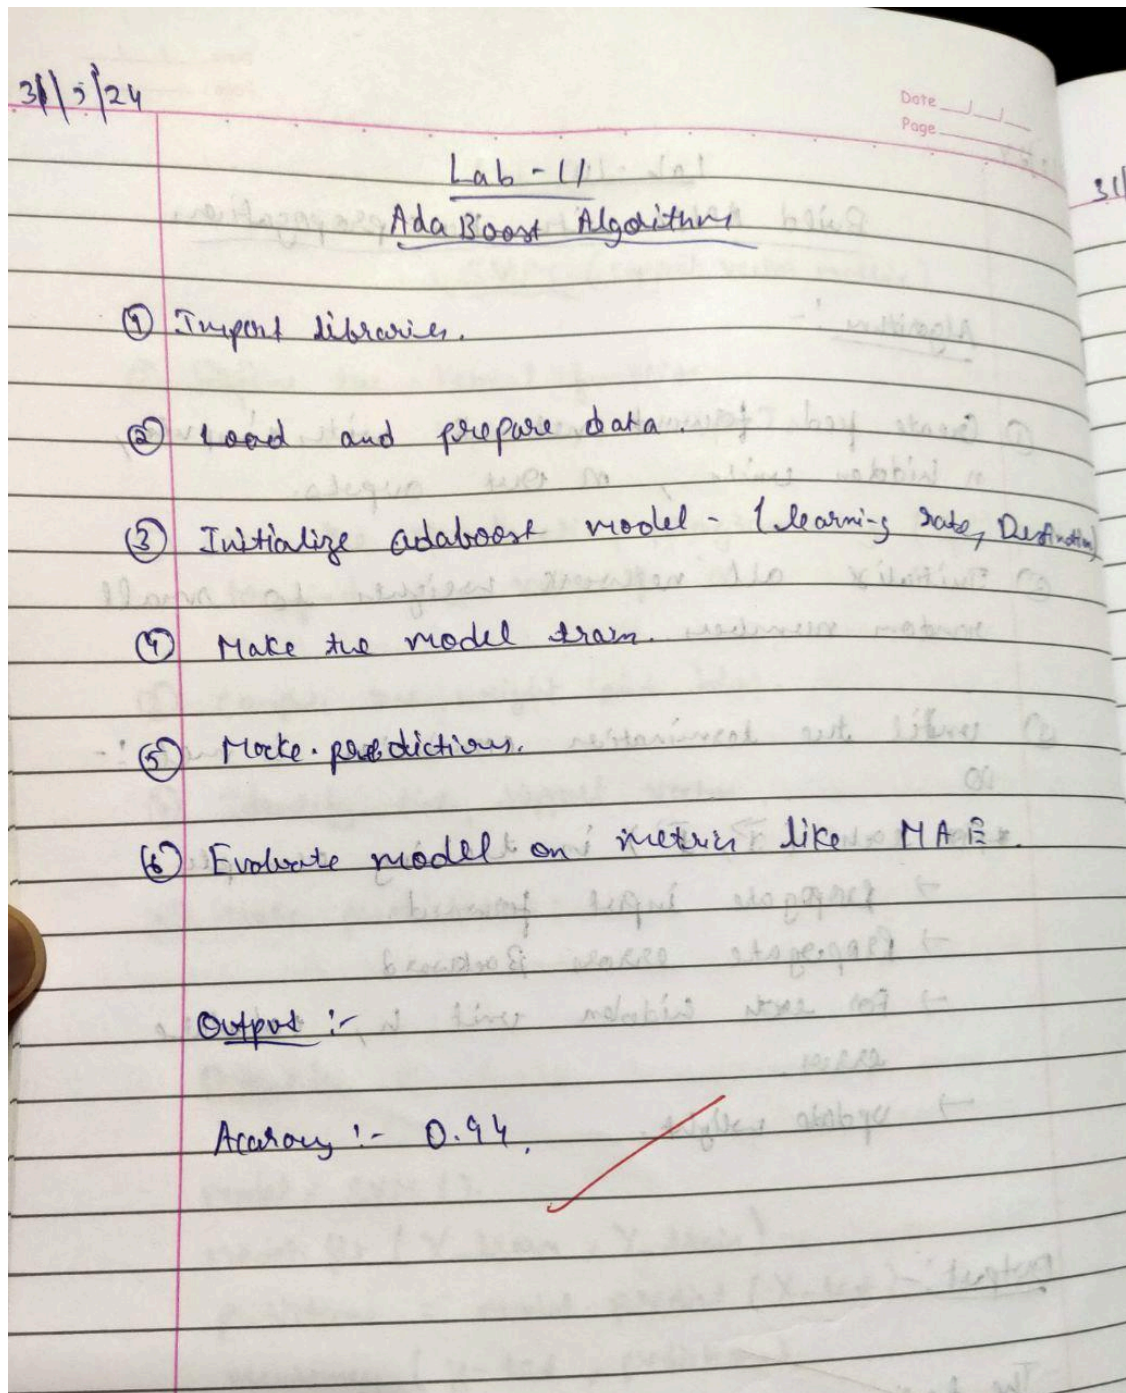 31/5/24
Date
Page
Lab - 11
Ada Boost Algorithm
① Import libraries.
② Load and prepare data.
③ Initialize adaboost model - (learning rate,
④ Make the model train.
⑤ Make predictions.
⑥ Evaluate model on metrics like MAE.
Output :-
Accuracy :- 0.94.
31